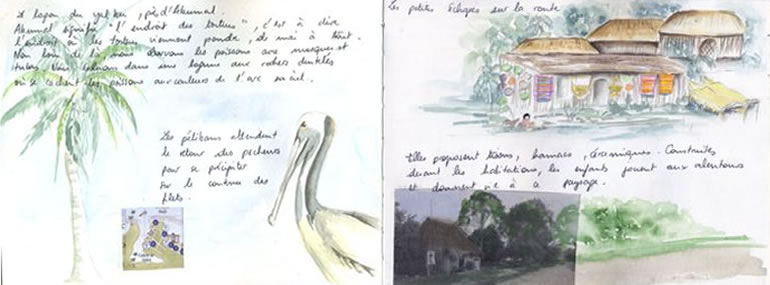 Le lagon du yal ku, près d'Akumal.
Akumal signifie "l'endroit des tortues", c'est à dire
l'endroit où les tortues viennent pondre, de mai à Août.
Non loin de là, nous observons les poissons avec masques et
tubas. Nous dans une lagune aux rochers dentelés
où se cachent les poissons aux couleurs de l'arc en ciel.
Les pélicans attendent
le retour des pêcheurs
pour se précipiter
sur le contenu des
filets.
Les petites échopes sur la route
Elles proposent tissus, hamacs, céramiques. Construites
devant les habitations, les enfants jouent aux alentours
et donnent vie à ce paysage.